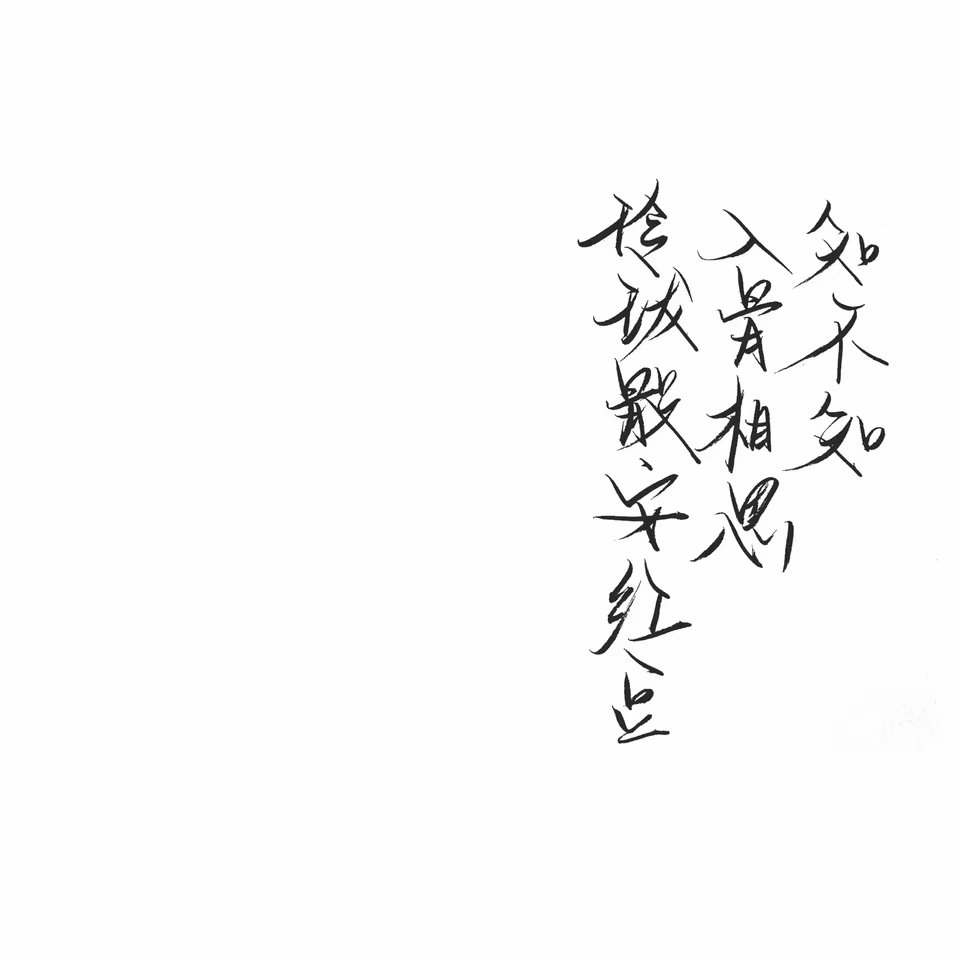 玲珑骰安红豆
入骨相思
知不知